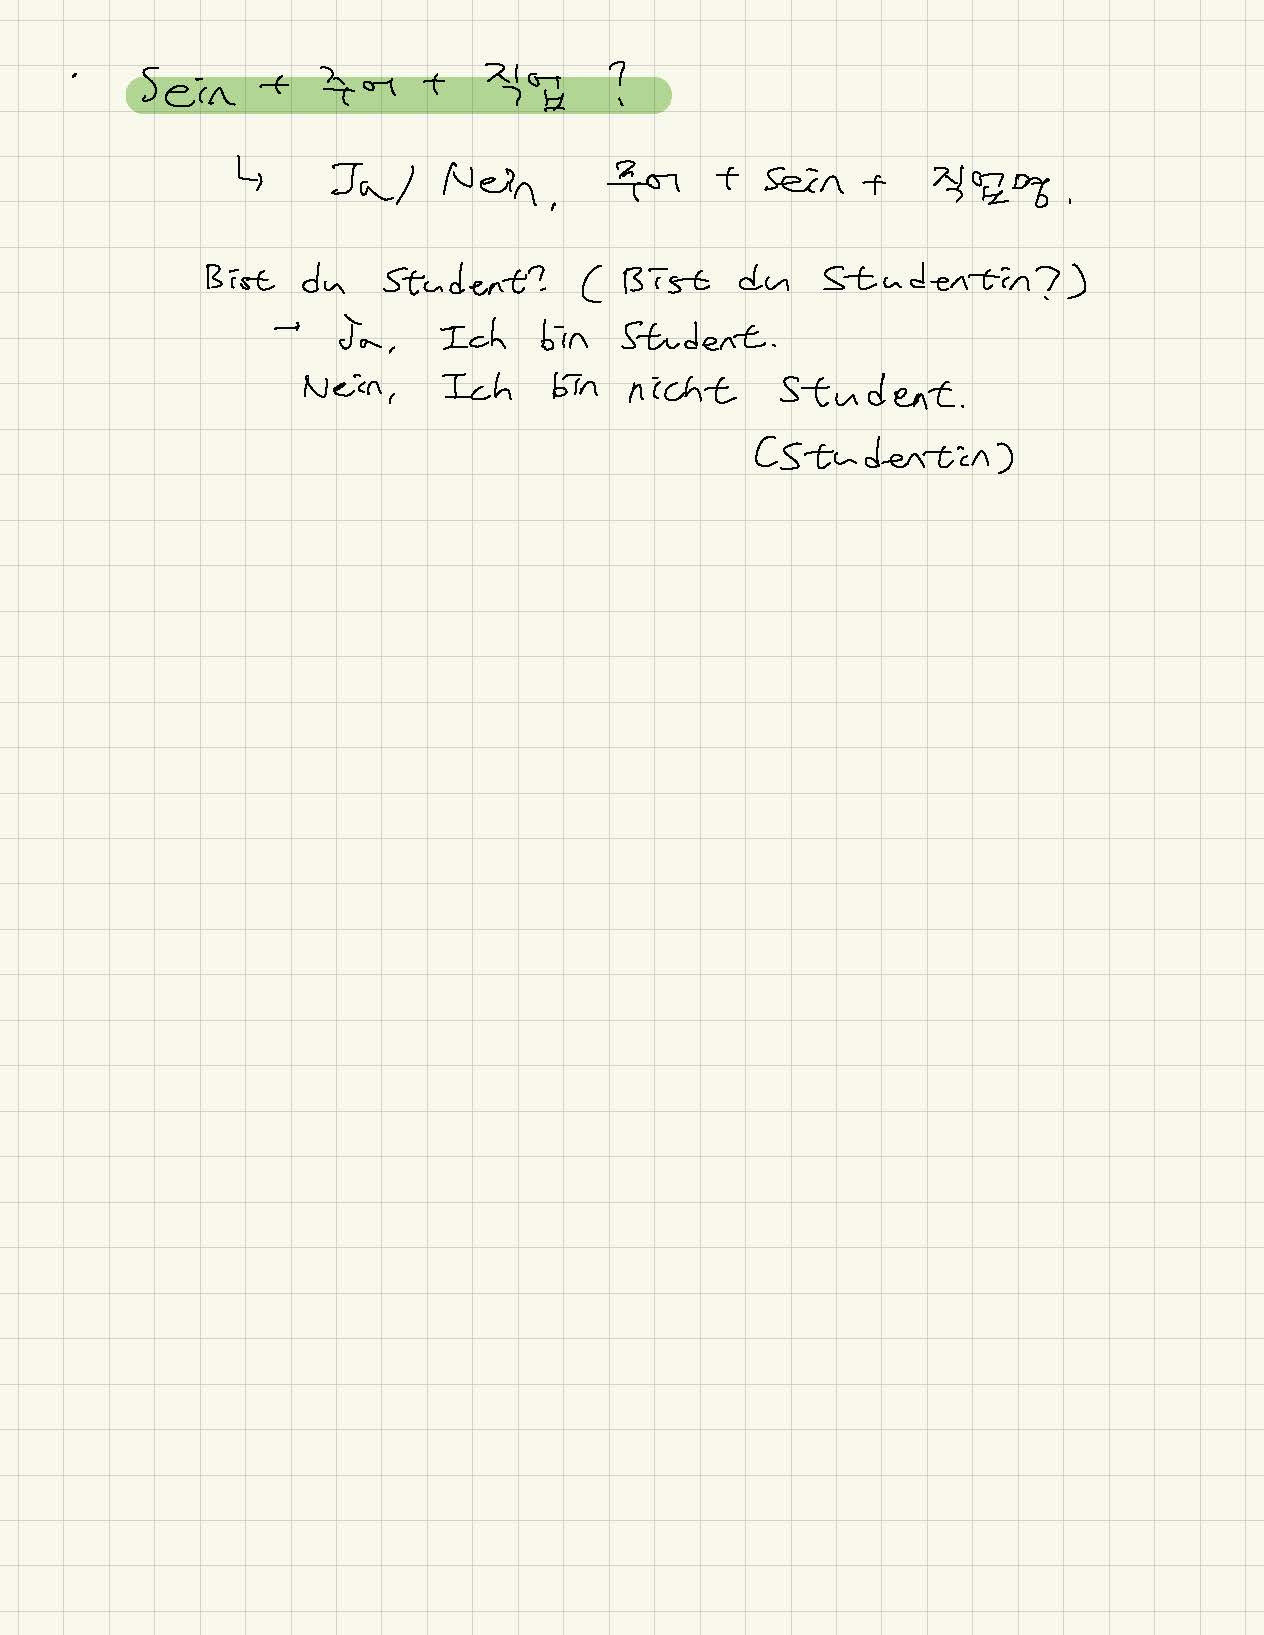 · Sein + 주어 + 직업 ?
↳ Ja / Nein, 주어 + sein + 직업명.
Bist du Student? (Bist du Studentin?)
→ Ja, Ich bin Student.
Nein, Ich bin nicht Student.
(Studentin)